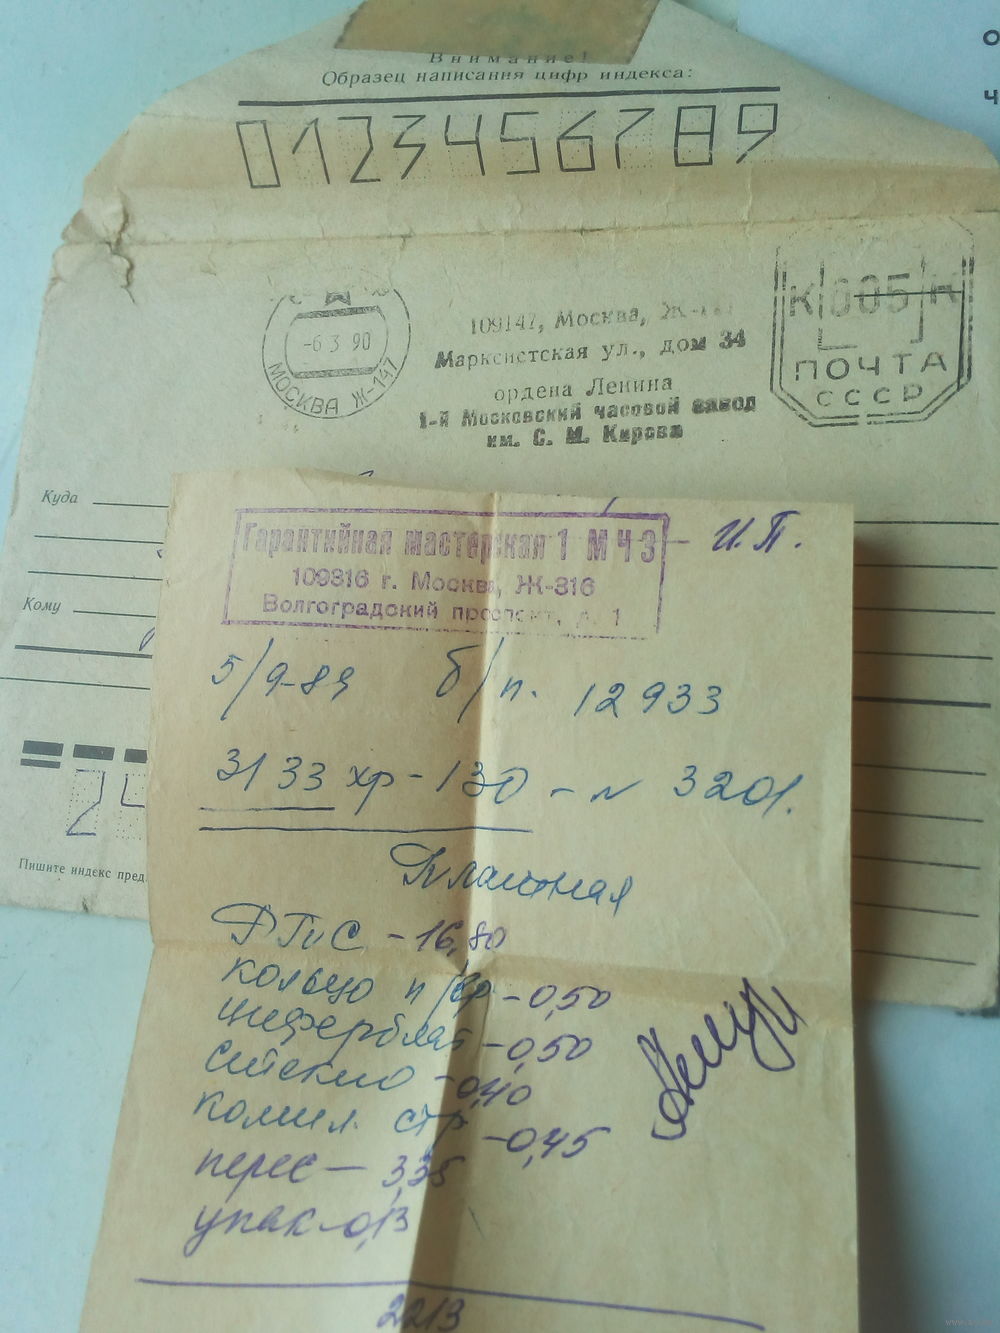 Внимание!
Образец написания цифр индекса:
0123456789
О
Ч
-6 3 90
МОСКВА Ж-147
109147, Москва, Ж-
Марксистская ул., дом 34
ордена Ленина
1-й Московский часовой завод
им. С. М. Кирова
К 005 К
ПОЧТА
СССР
Куда
Кому
Гарантийная мастерская 1 МЧЗ — И.П.
109316 г. Москва, Ж-316
Волгоградский проспект, д. 1
5/9-89 б/п. 12933
3133 хр - 130 - N 3201.
Платная
- 16,80
кольцо п/кр - 0,50
циферблат - 0,50
стекло - 0,40
компл. стр - 0,45
перес — 3,35
упак - 0,13
2213
24
Пишите индекс пред